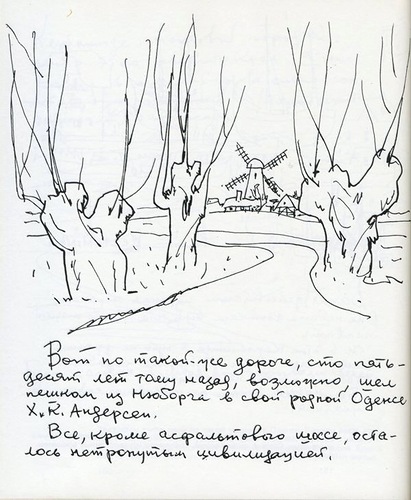 Вот по такой же дороге, сто пять-
десят лет тому назад, возможно, шел
пешком из Нюборга в свой родной Оденсе
Х. К. Андерсен.
Все, кроме асфальтового шоссе, оста-
лось нетронутым цивилизацией.